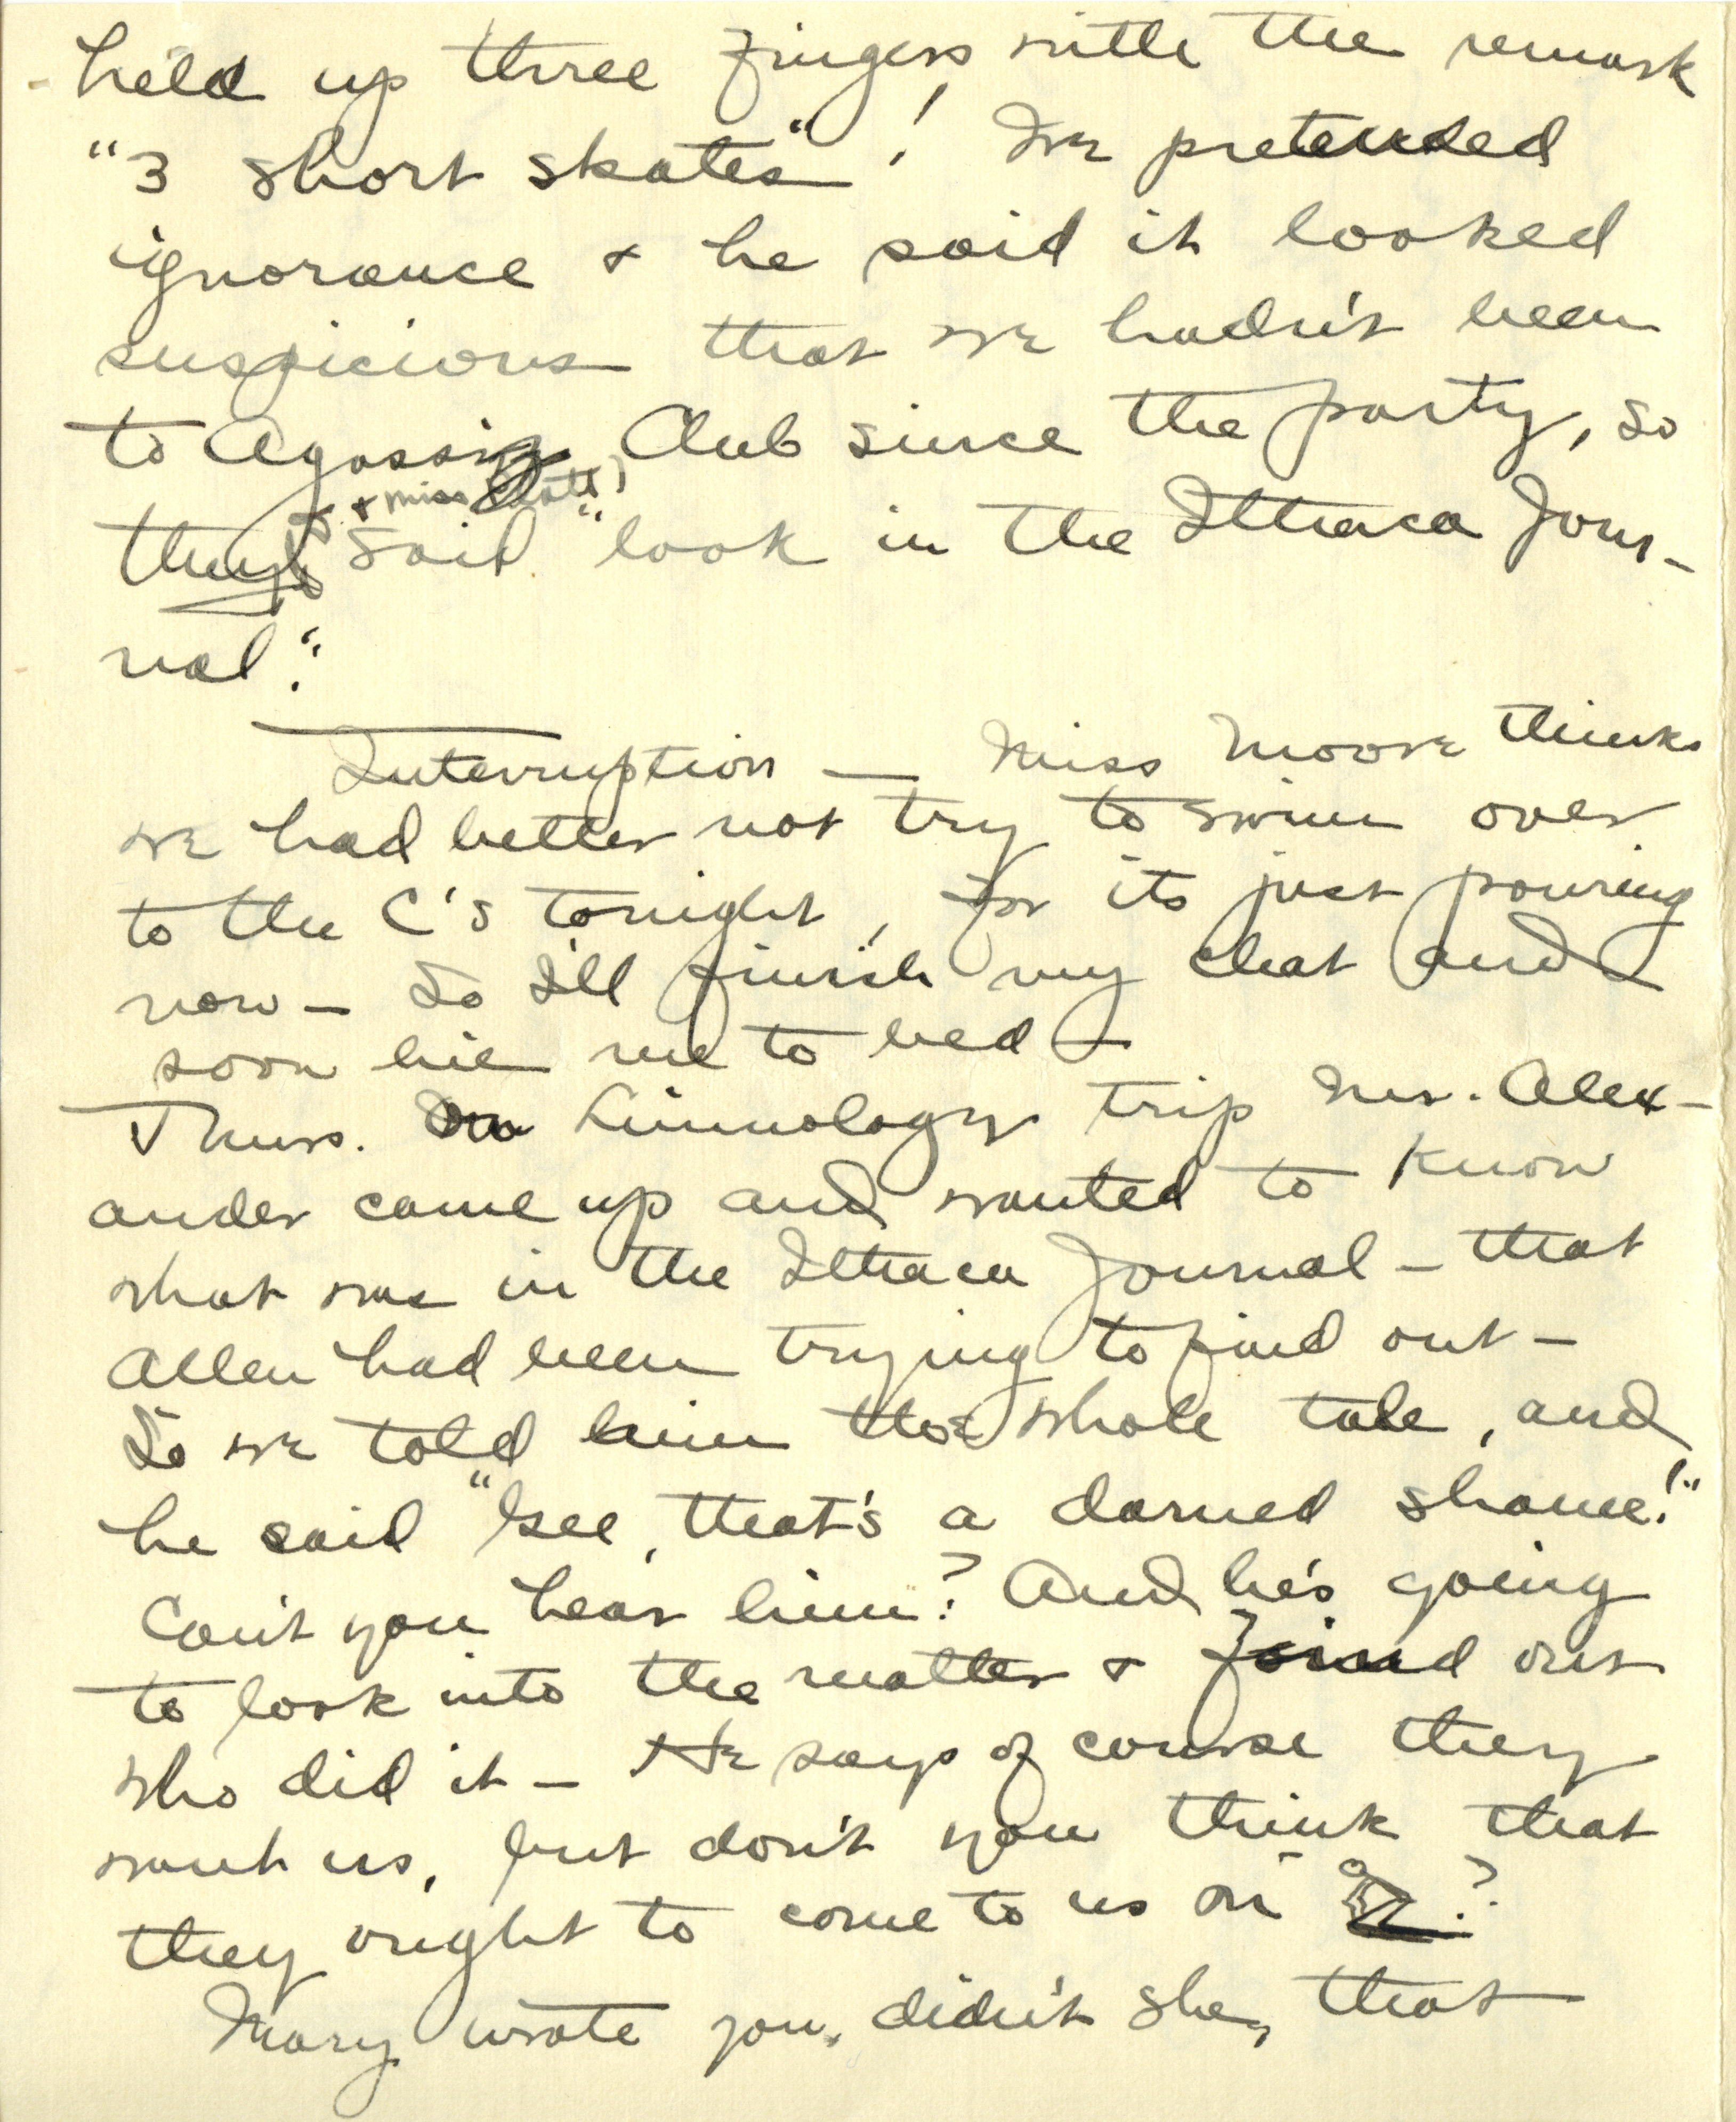 held up three fingers with the remark
"3 short skates"! We pretended
ignorance & he said it looked
suspicious that we hadn't been
to Agassiz Club since the party, so
& Miss
they said "look in the Ithaca Jour-
nal".
Interruption — Miss Moore thinks
we had better not try to swim over
to the C's tonight, for its just pouring
now — So I'll finish my chat and
soon hie me to bed —
Thurs. on Limnology trip Mr. Alex-
ander came up and wanted to know
what was in the Ithaca Journal — that
Allen had been trying to find out —
So we told him the whole tale, and
he said "Gee, that's a darned shame!"
Can't you hear him? And he's going
to look into the matter & find out
who did it — He says of course they
want us, but don't you think that
they ought to come to us on ?
Mary wrote you, didn't she, that